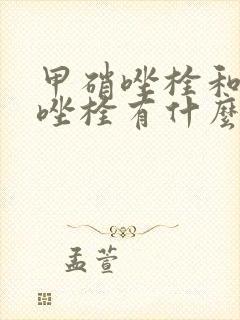 甲硝唑栓和
唑栓有什麼
孟萱